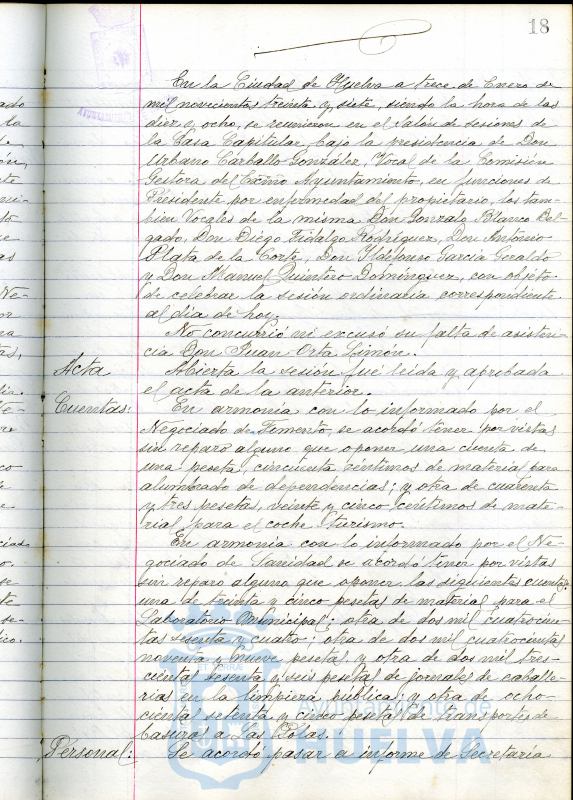 18
En la Ciudad de Huelva a trece de Enero de
mil novecientos treinta y siete, siendo la hora de las
diez y ocho, se reunieron en el Salón de sesiones de
la Casa Capitular, bajo la presidencia de Don
Urbano Carballo González, Vocal de la Comisión
Gestora del Excmo Ayuntamiento, en funciones de
Presidente por enfermedad del propietario, los tam-
bien Vocales de la misma Don Gonzalo Blanco Del-
gado, Don Diego Fidalgo Rodríguez, Don Antonio
Plata de la Corte, Don Ildefonso García Geraldo
y Don Manuel Quintero Domínguez, con objeto
de celebrar la sesión ordinaria correspondiente
al día de hoy.
No concurrió ni excusó su falta de asisten-
cia Don Juan Orta Limón.
Acta
Abierta la sesión fué leída y aprobada
el acta de la anterior.
Cuentas:
En armonía con lo informado por el
Negociado de Fomento, se acordó tener por vistas
sin reparo alguno que oponer, una cuenta de
una peseta, cincuenta céntimos de material para
alumbrado de dependencias; y otra de cuarenta
y tres pesetas, veinte y cinco céntimos de mate-
rial para el coche Sturismo.
En armonía con lo informado por el Ne-
gociado de Sanidad se acordó tener por vistas
sin reparo alguno que oponer las siguientes cuentas:
una de treinta y cinco pesetas de material para el
Laboratorio Municipal; otra de dos mil cuatrocien-
tas sesenta y cuatro; otra de dos mil cuatrocientas
noventa y nueve pesetas, y otra de dos mil tres-
cientas sesenta y seis pesetas de jornales de caballe-
rías en la limpieza pública; y otra de ocho-
cientas setenta y cinco pesetas de transportes de
basuras a Las Colas.
Personal:
Se acordó pasar a informe de Secretaría
Ayuntamiento de
HUELVA